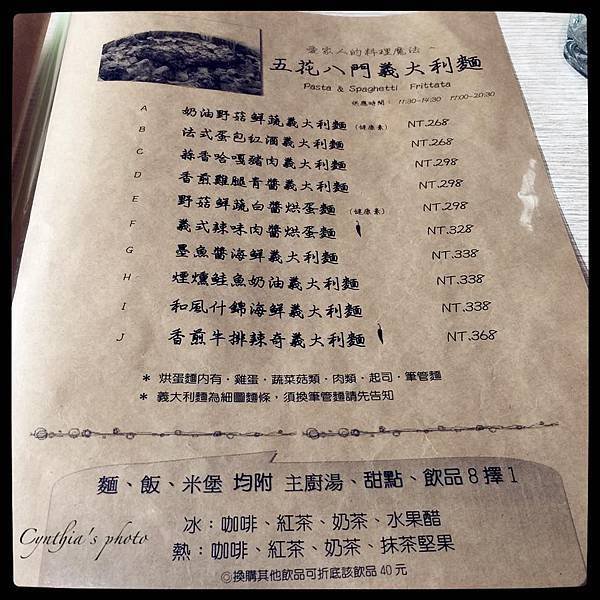 愛家人的料理魔法～
五花八門義大利麵
Pasta & Spaghetti Frittata
供應時間： 11:30-14:30 17:00-20:30
A 奶油野菇鮮蔬義大利麵 (健康素) NT.268
B 法式蛋包紅酒義大利麵 NT.268
C 蒜香哈嘎豬肉義大利麵 NT.298
D 香煎雞腿青醬義大利麵 NT.298
E 野菇鮮蔬白醬烘蛋麵 (健康素) NT.298
F 義式辣味肉醬烘蛋麵 NT.328
G 墨魚醬海鮮義大利麵 NT.338
H 煙燻鮭魚奶油義大利麵 NT.338
I 和風什錦海鮮義大利麵 NT.338
J 香煎牛排辣奇義大利麵 NT.368
* 烘蛋麵內有．雞蛋．蔬菜菇類．肉類．起司．筆管麵
* 義大利麵為細圓麵條，須換筆管麵請先告知
麵、飯、米堡 均附 主廚湯、甜點、飲品8擇1
冰：咖啡、紅茶、奶茶、水果醋
熱：咖啡、紅茶、奶茶、抹茶堅果
◎換購其他飲品可折底該飲品40元
Cynthia's photo